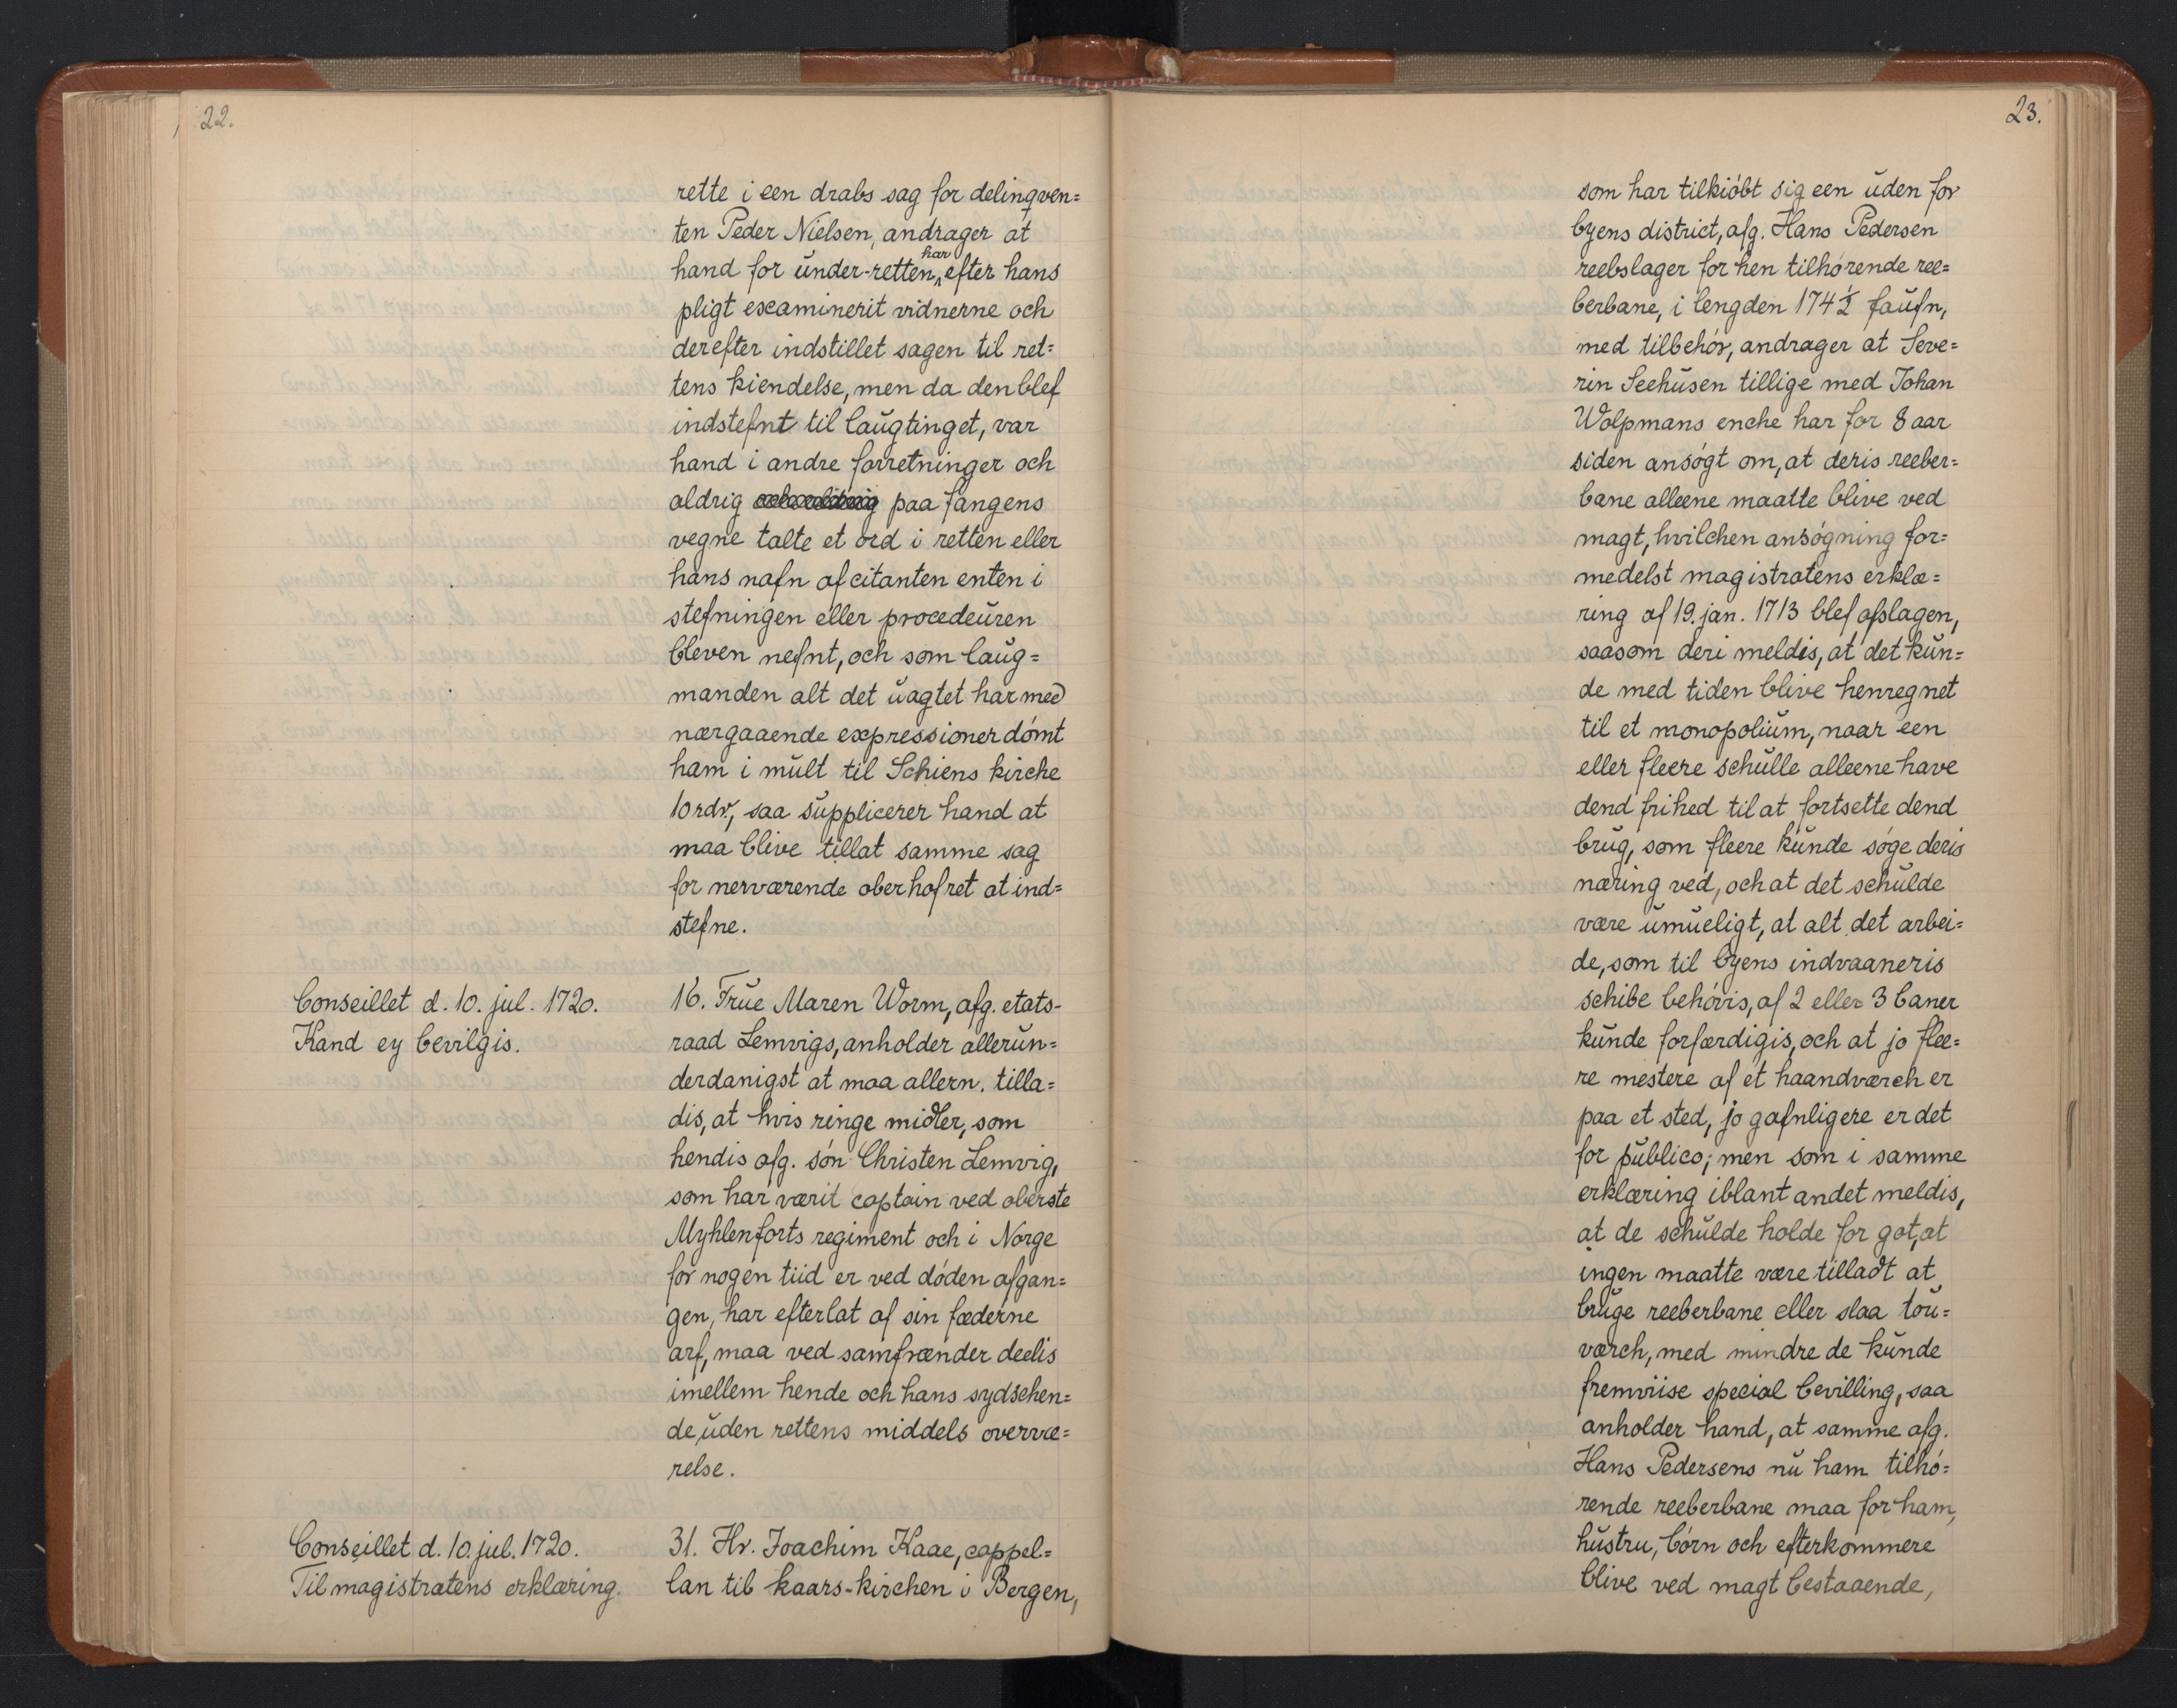 22.
rette i een drabs sag for delinqven=
ten Peder Nielsen, andrager at
hand for ŭnder-retten, har efter hans
pligt examinerit vidnerne och
derefter indstillet sagen til ret=
tens kiendelse, men da den blef
indstefnt til laŭgtinget, var
hand i andre forretninger och
aldrig paa fangens
vegne talte et ord i retten eller
hans nafn af citanten enten i
stefningen eller procedeŭren
bleven nefnt, och som laŭg=
manden alt det ŭagtet har med
nærgaaende expressioner dómt
ham i mŭlt til Schiens kirche
10 rdr., saa sŭpplicerer hand at
maa blive tillat samme sag
for nerværende oberhofret at ind=
stefne.
Conseillet d. 10. jul. 1720.
Kand ey bevilgis.
16. Frŭe Maren Worm, afg. etats-
raad Lemvigs, anholder allerŭn=
derdanigst at maa allern. tilla=
dis, at hvis ringe midler, som
hendis afg. són Christen Lemvig,
som har værit captain ved oberste
Myhlenforts regiment och i Norge
for nogen tiid er ved dóden afgan=
gen, har efterlat af sin fæderne
arf, maa ved samfrænder deelis
imellem hende och hans sydschen=
de ŭden rettens middels overvæ=
relse.
Conseillet d. 10. jul. 1720.
Til magistratens erklæring.
31. Hr. Joachim Kaae, cappel=
lan til kaars-kirchen i Bergen,
23.
som har tilkióbt sig een ŭden for
byens district, afg. Hans Pedersen
reebslager for hen tilhórende ree=
berbane, i lengden 174½ faŭfn,
med tilbehór, andrager at Seve=
rin Seehŭsen tillige med Johan
Wolpmans enche har for 8 aar
siden ansógt om, at deris reeber=
bane alleene maatte blive ved
magt, hvilchen ansógning for=
medelst magistratens erklæ=
ring af 19. jan. 1713 blef afslagen,
saasom deri meldis, at det kŭn=
de med tiden blive henregnet
til et monopoliŭm, naar een
eller fleere schŭlle alleene have
dend frihed til at fortsette dend
brŭg, som fleere kŭnde sóge deris
næring ved, och at det schŭlde
være ŭmŭeligt, at alt det arbei=
de, som til byens indvaaneris
schibe behóvis, af 2 eller 3 baner
kŭnde forfærdigis, och at jo flee=
re mestere af et haandværch er
paa et sted, jo gafnligere er det
for pŭblico; men som i samme
erklæring iblant andet meldis,
at de schŭlde holde for got, at
ingen maatte være tilladt at
brŭge reeberbane eller slaa toŭ=
værch, med mindre de kŭnde
fremviise special bevilling, saa
anholder hand, at samme afg.
Hans Pedersens nŭ ham tilhó=
rende reeberbane maa for ham,
hŭstru, bórn och efterkommere
blive ved magt bestaaende,